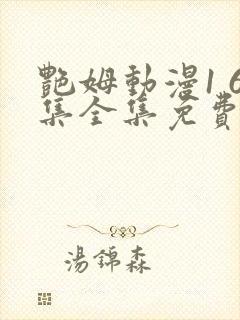 艷姆動漫1 6
集全集免費
湯錦森